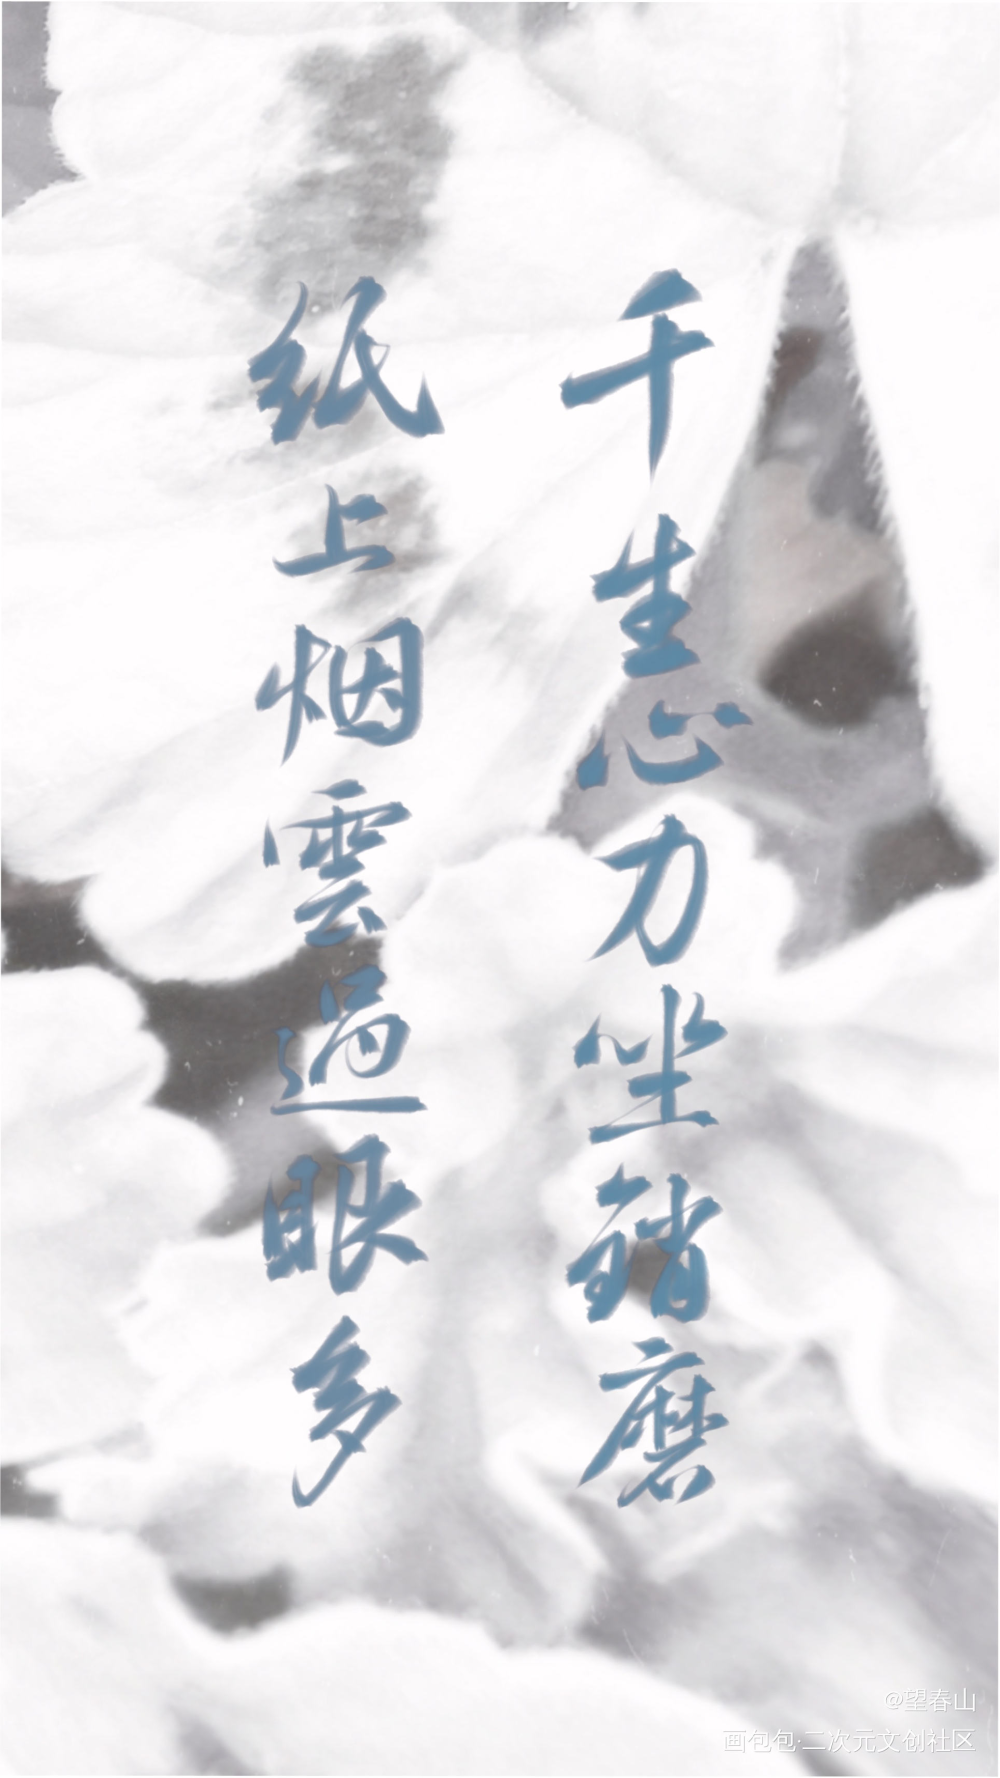 千生心力坐销磨
纸上烟雲過眼多
@望春山
画包包·二次元文创社区